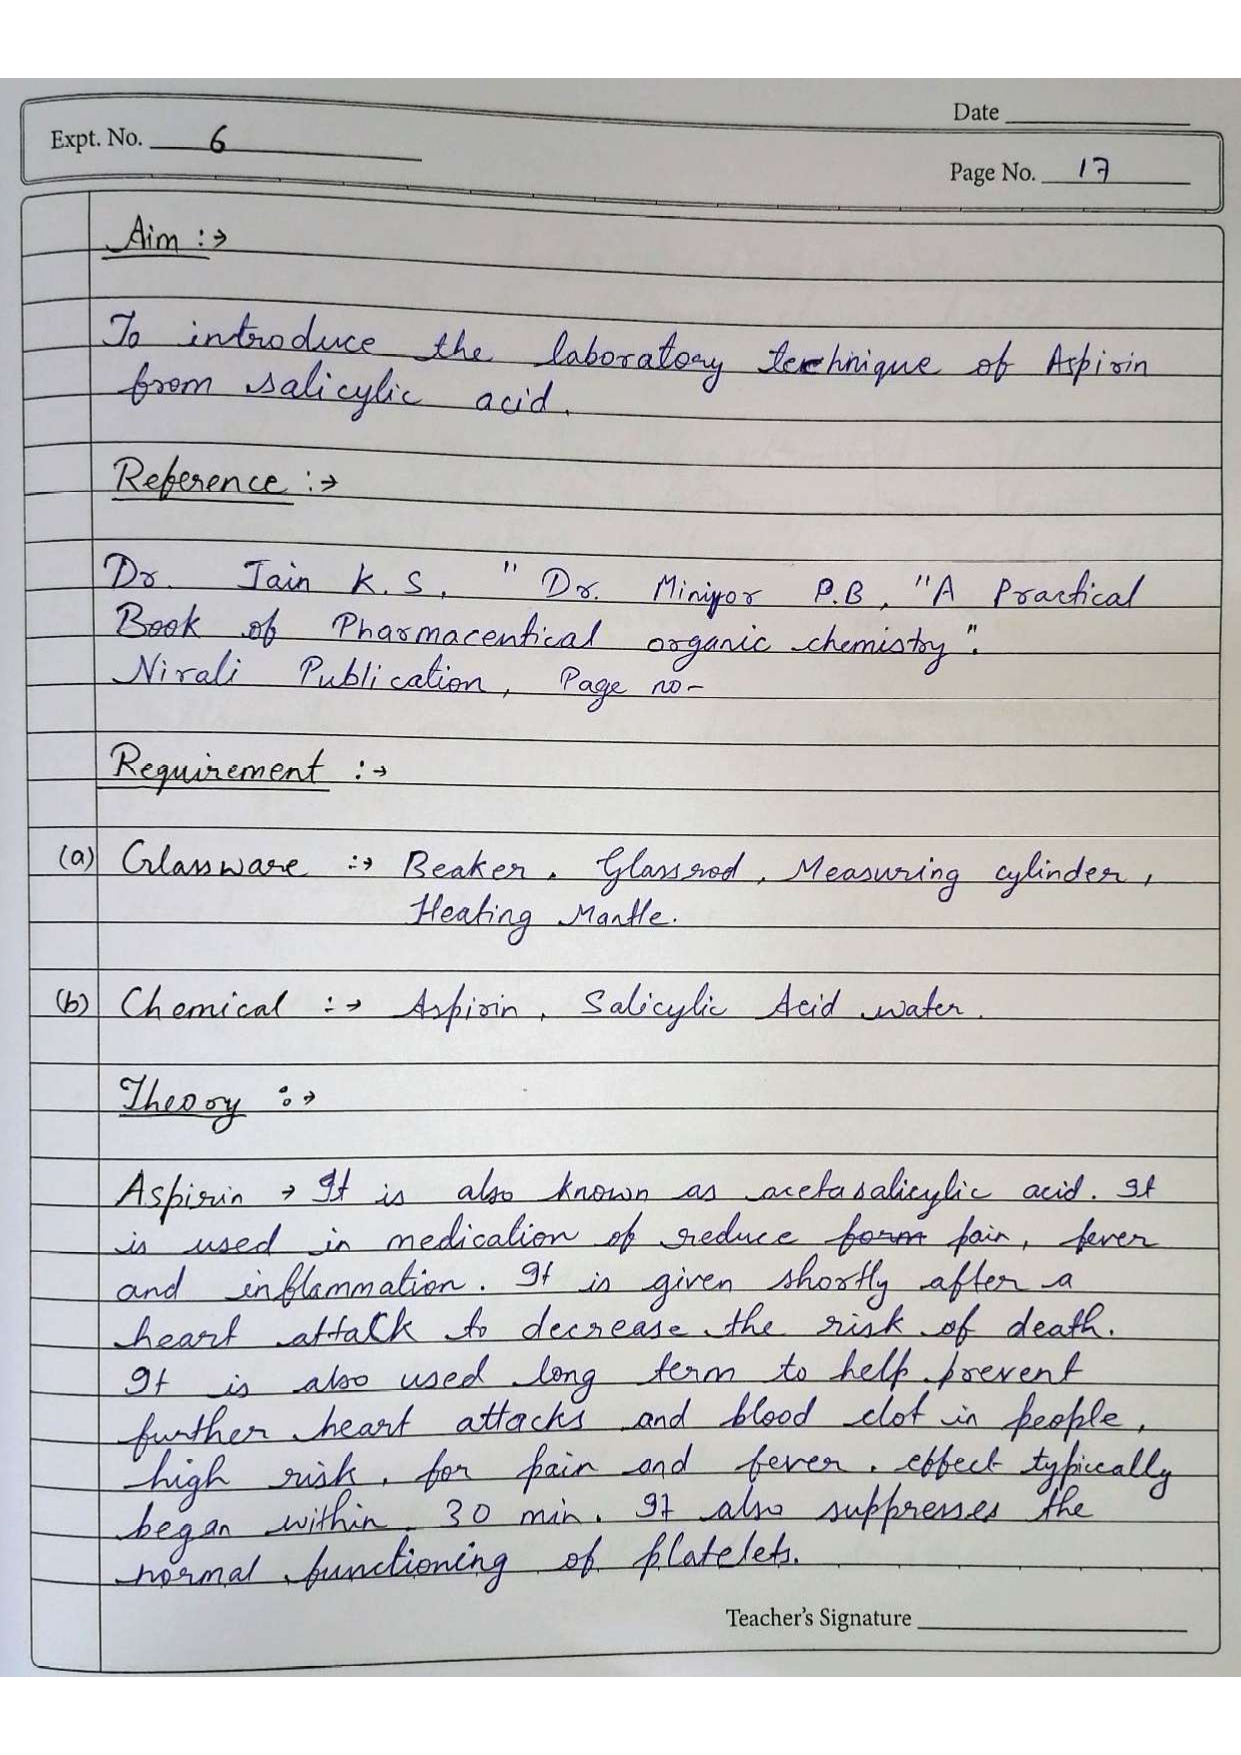 Date
Expt. No. 6
Page No. 17
Aim :→
To introduce the laboratory technique of Aspirin
from salicylic acid.
Reference :→
Dr. Jain K.S, " Dr. Miniyor P.B, "A Practical
Book of Pharmacentical organic chemistry".
Nirali Publication, Page no-
Requirement :→
(a) Glassware :→ Beaker, Glassrod, Measuring cylinder,
Heating Mantle.
(b) Chemical :→ Aspirin, Salicylic Acid water.
Theory :→
Aspirin → It is also known as acetasalicylic acid. It
is used in medication of reduce form pain, fever
and inflammation. It is given shortly after a
heart attack to decrease the risk of death.
It is also used long term to help prevent
further heart attacks and blood clot in people,
high risk, for pain and fever, effect typiccally
began within 30 min. It also suppresses the
normal functioning of platelets.
Teacher's Signature